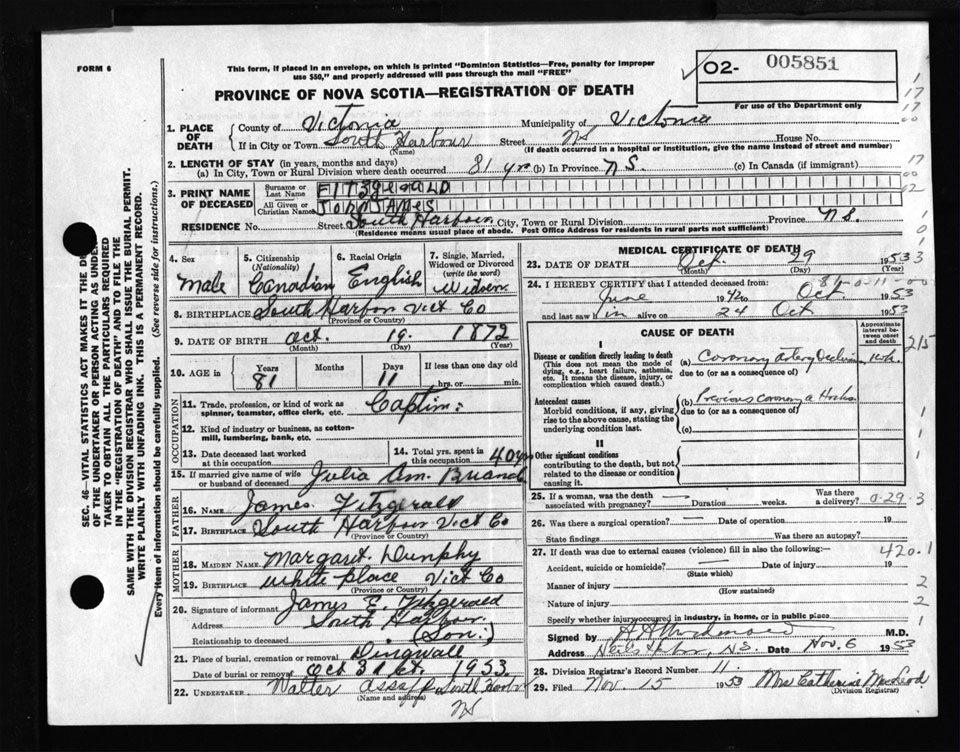 FORM 6
This form, if placed in an envelope, on which is printed "Dominion Statistics—Free, penalty for improper
use $50," and properly addressed will pass through the mail "FREE"
O2- 005851
PROVINCE OF NOVA SCOTIA—REGISTRATION OF DEATH
For use of the Department only
1. PLACE OF DEATH
County of Victoria Municipality of Victoria
If in City or Town South Harbour Street NS House No.
(Name) (If death occurred in a hospital or institution, give the name instead of street and number)
2. LENGTH OF STAY (in years, months and days)
(a) In City, Town or Rural Division where death occurred 81 yrs (b) In Province NS. (c) In Canada (if immigrant)
3. PRINT NAME OF DECEASED
Surname or Last Name FITzgeraLD
All Given or Christian Names JOHN JAMES
RESIDENCE No. Street South Harbour City, Town or Rural Division Province NS.
(Residence means usual place of abode. Post Office Address for residents in rural parts not sufficient)
SEC. 46—VITAL STATISTICS ACT MAKES IT THE DU
OF THE UNDERTAKER OR PERSON ACTING AS UNDE
TAKER TO OBTAIN ALL THE PARTICULARS REQUIRED
IN THE "REGISTRATION OF DEATH" AND TO FILE THE
SAME WITH THE DIVISION REGISTRAR WHO SHALL ISSUE THE BURIAL PERMIT.
WRITE PLAINLY WITH UNFADING INK. THIS IS A PERMANENT RECORD.
Every item of information should be carefully supplied. (See reverse side for instructions.)
4. Sex
male
5. Citizenship (Nationality)
Canadian
6. Racial Origin
English
7. Single, Married, Widowed or Divorced (write the word)
Widoer
8. BIRTHPLACE South Harbor Vict Co
(Province or Country)
9. DATE OF BIRTH Oct. 19. 1872
(Month) (Day) (Year)
10. AGE in Years Months Days If less than one day old
81 11 hrs. or min.
OCCUPATION
11. Trade, profession, or kind of work as
spinner, teamster, office clerk, etc. Captin.
12. Kind of industry or business, as cotton-
mill, lumbering, bank, etc.
13. Date deceased last worked
at this occupation
14. Total yrs. spent in
this occupation 40 yrs
15. If married give name of wife
or husband of deceased Julia Am. Briand
FATHER
16. NAME James Fitzgerald
17. BIRTHPLACE South Harbour Vict Co
(Province or Country)
MOTHER
18. MAIDEN NAME Margaret. Dumphy
19. BIRTHPLACE White place Vict Co
(Province or Country)
20. Signature of informant James E. Fitzgerald
Address South Harbor
Relationship to deceased (Son.)
21. Place of burial, cremation or removal Dingwall
Date of burial or removal Oct 31 st. 1953
22. UNDERTAKER Walter Assaff South Harbor
(Name and address) NS
MEDICAL CERTIFICATE OF DEATH
23. DATE OF DEATH Oct. 29 1953
(Month) (Day) (Year)
24. I HEREBY CERTIFY that I attended deceased from
June 1942 to Oct. 1953
and last saw him alive on 24 Oct 1953
CAUSE OF DEATH
Approximate interval between onset and death
I
Disease or condition directly leading to death
(This does not mean the mode of
dying, e.g., heart failure, asthenia,
etc. It means the disease, injury, or
complication which caused death.)
(a) Coronary artery
due to (or as a consequence of)
Antecedent causes
Morbid conditions, if any, giving
rise to the above cause, stating the
underlying condition last.
(b) Previous coronary
due to (or as a consequence of)
(c)
II
Other significant conditions
contributing to the death, but not
related to the disease or condition
causing it.
25. If a woman, was the death
associated with pregnancy? — Duration weeks. Was there a delivery?
0-29-3
26. Was there a surgical operation? — Date of operation 19
State findings Was there an autopsy?
27. If death was due to external causes (violence) fill in also the following:—
420.1
Accident, suicide or homicide? — Date of injury 19
(State which)
Manner of injury
(How sustained)
Nature of injury
Specify whether injury occurred in industry, in home, or in public place
Signed by M.D.
Address Neils Harbor, N.S. Date Nov. 6 1953
28. Division Registrar's Record Number 11.
29. Filed Nov. 15 1953 Mrs Catherine MacLeod
(Division Registrar)